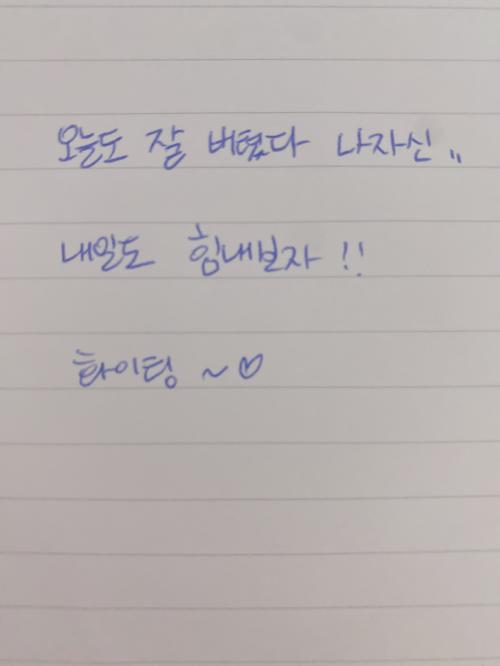 오늘도 잘 버텼다 나자신,,
내일도 힘내보자 !!
화이팅 ~♡